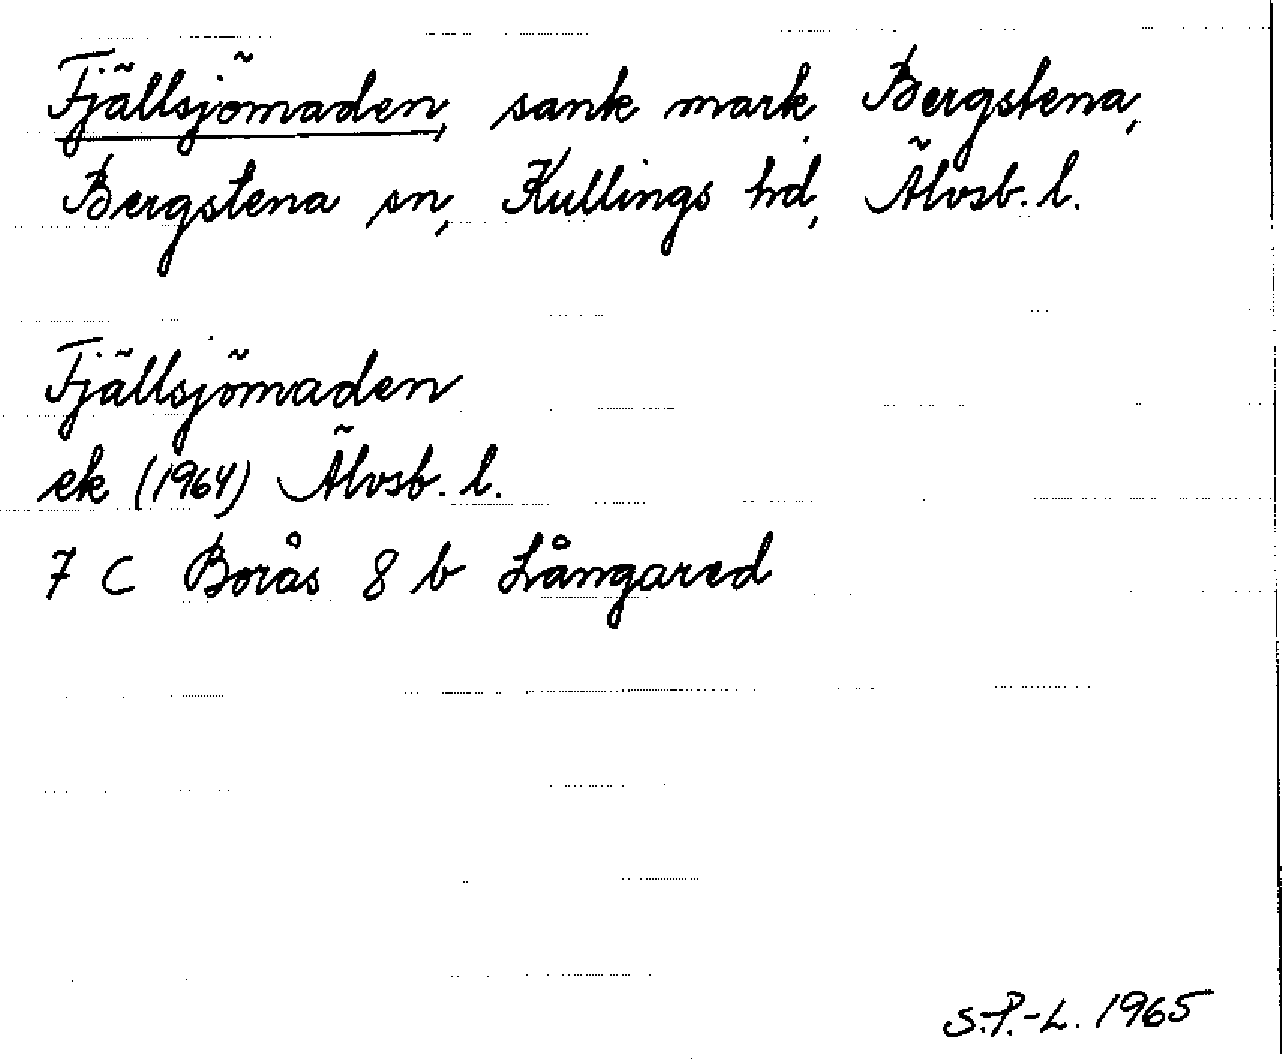 Fjällsjömaden, sank mark, Bergstena,
Bergstena sn, Kullings hd, Älvsb. l.
Fjällsjömaden
ek (1964) Älvsb. l.
7 C Borås 8 b Långared
S.-P.-L. 1965